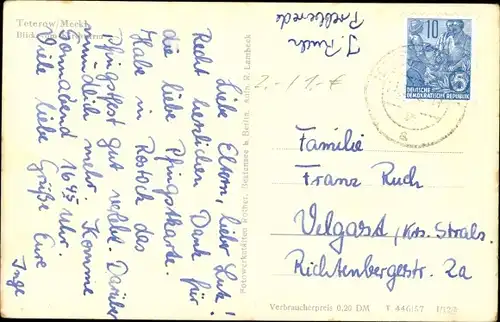 Teterow/Meckl.
Blick
Liebe Eltern, lieber Lutz!
Recht herzlichen Dank für
die liebe Pfingstkarte.
Habe in Rostock das
Pfingstfest gut verlebt. Darüber
mündlich mehr. Komme
Sonnabend 16⁴⁵ Uhr.
Viele liebe Grüße Eure
Inge
Fotowerkstätten Rotner, Bestensee b. Berlin, Aufn. R. Lambeck
J. Ruch
2.- / 1.- €
10
DEUTSCHE
DEMOKRATISCHE REPUBLIK
Familie
Franz Ruch
Velgast/Krs. Strals.
Richtenbergerstr. 2a
Verbraucherpreis 0,20 DM T 446/57